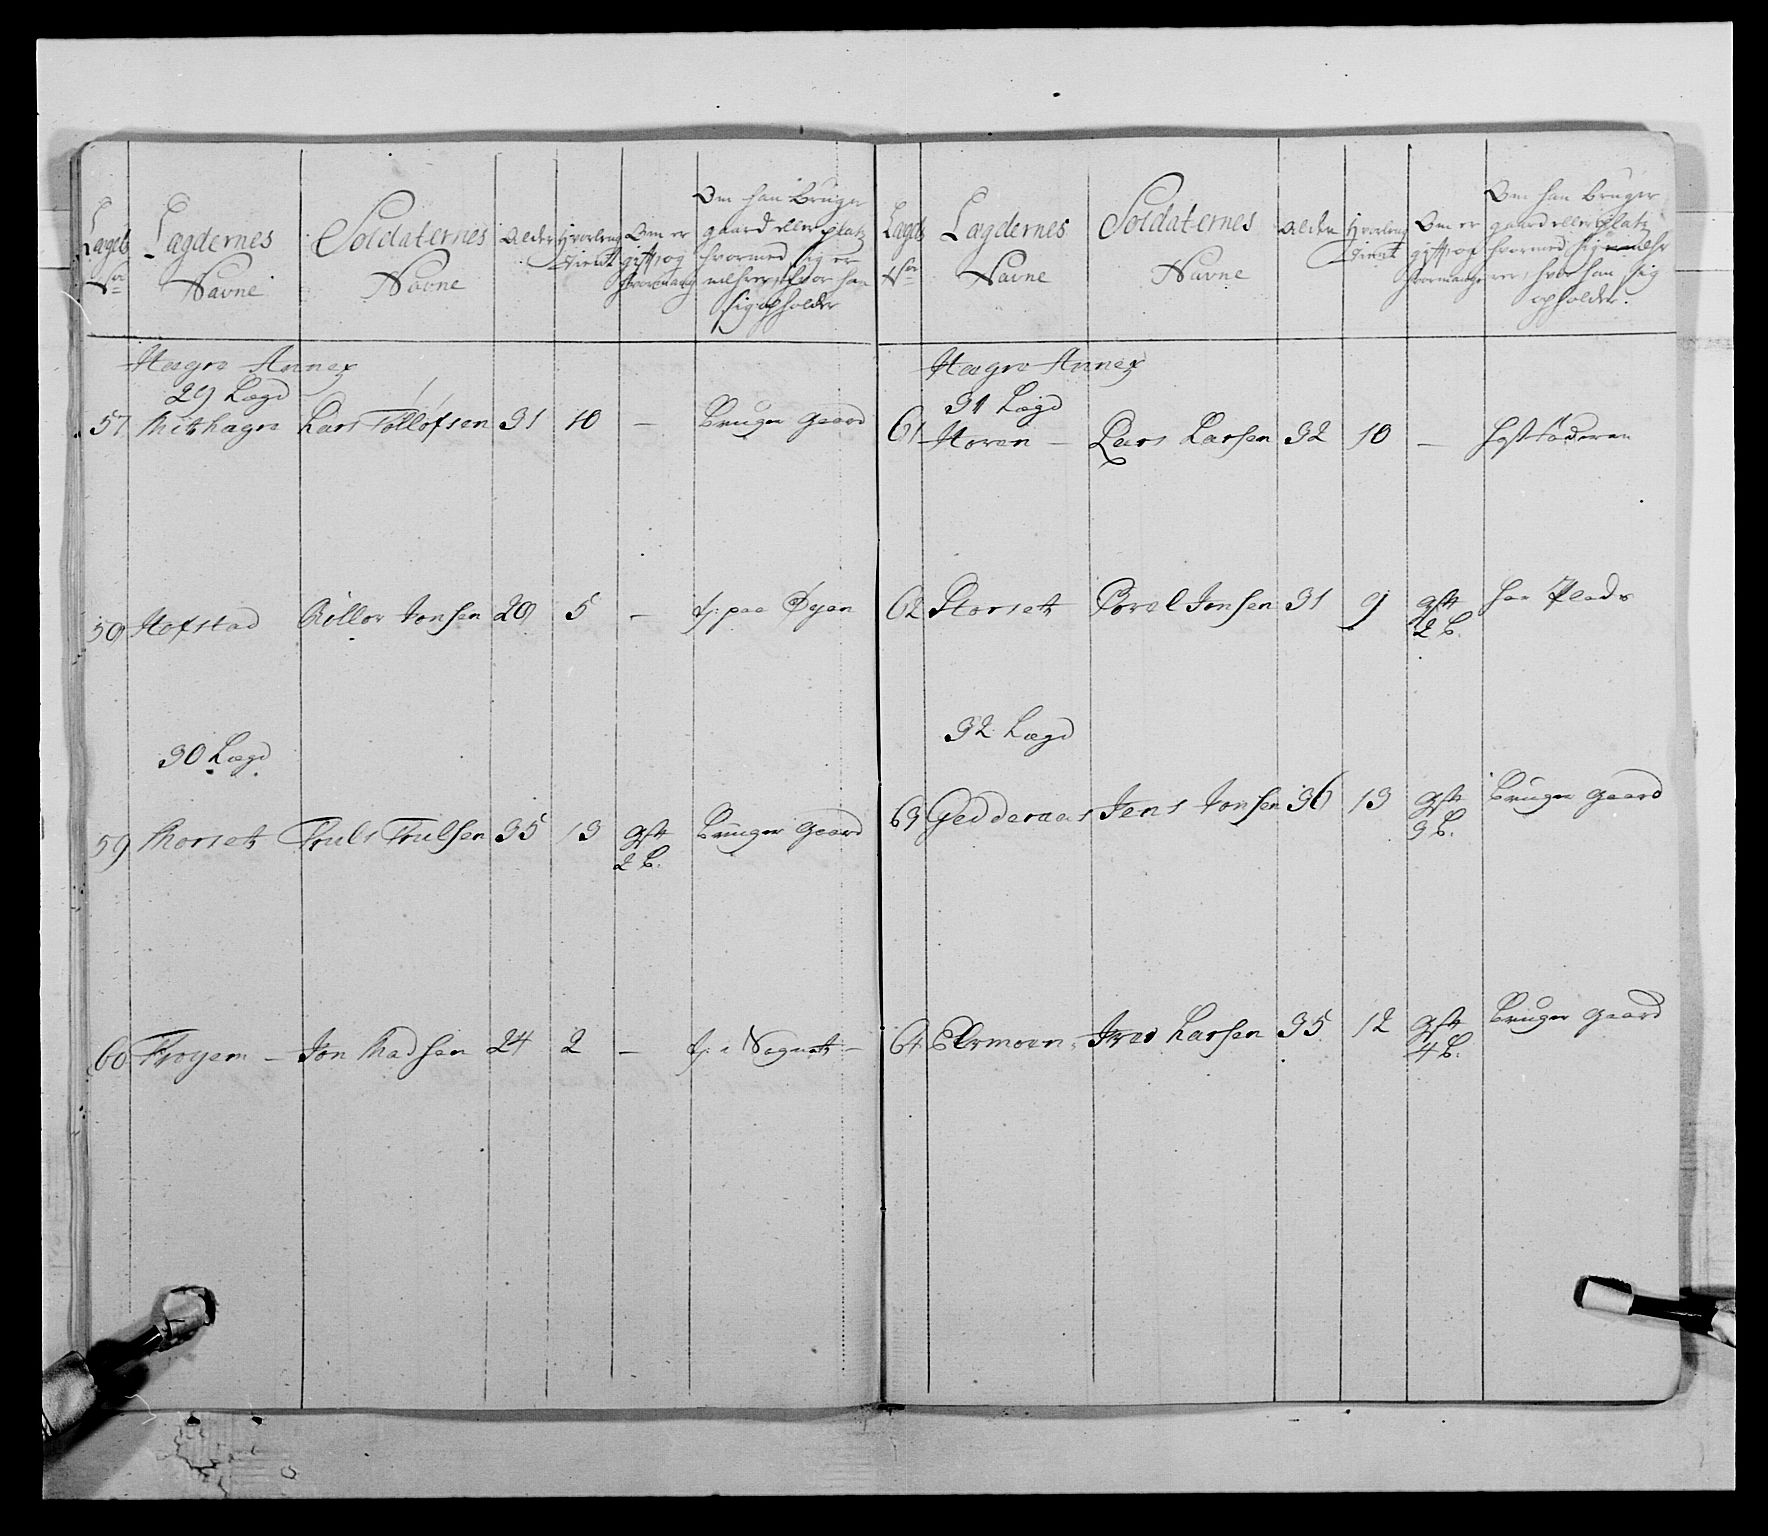 Lægds
No
Lægdernes
Navne
Soldaternes
Navne
Alder
Hvorleng
tient
Om er
gift, og
hvormang
Om han bruger
gaard eller platz
hvormed sig er
nehrer, hvor han
sig opholder
Hegre Annex
29 Lægd
57 Mithagre Lars Tølløfsen 31 10 - Bruger gaard
58 Hofstad Rollov Jonsen 28 5 - tj: paa Øyen
30 Lægd
59 Morset Truls Trulsen 35 13 gift Bruger gaard
2 B.
60 Frøyem - Jon Madsen 24 2 - tj: i Sognet -
Lægds
No
Lægdernes
Navne
Soldaternes
Navne
Alder
Hvorleng
tient
Om er
gift, og
hvormange
Om han bruger
gaard eller platz
hvormed sig nehr
rer, hvor han sig
opholder.
Hegre Annex
31 Lægd
61 Horen - Lars Larsen 32 10 -
62 Storset Povel Jonsen 31 9 gift har Plads
2 B.
32 Lægd
63 Gedderaas Jens Jonsen 36 13 gift Bruger gaard
3 B.
64 Elvmoen Larsen 35 12 gift Bruger gaard
4 B.